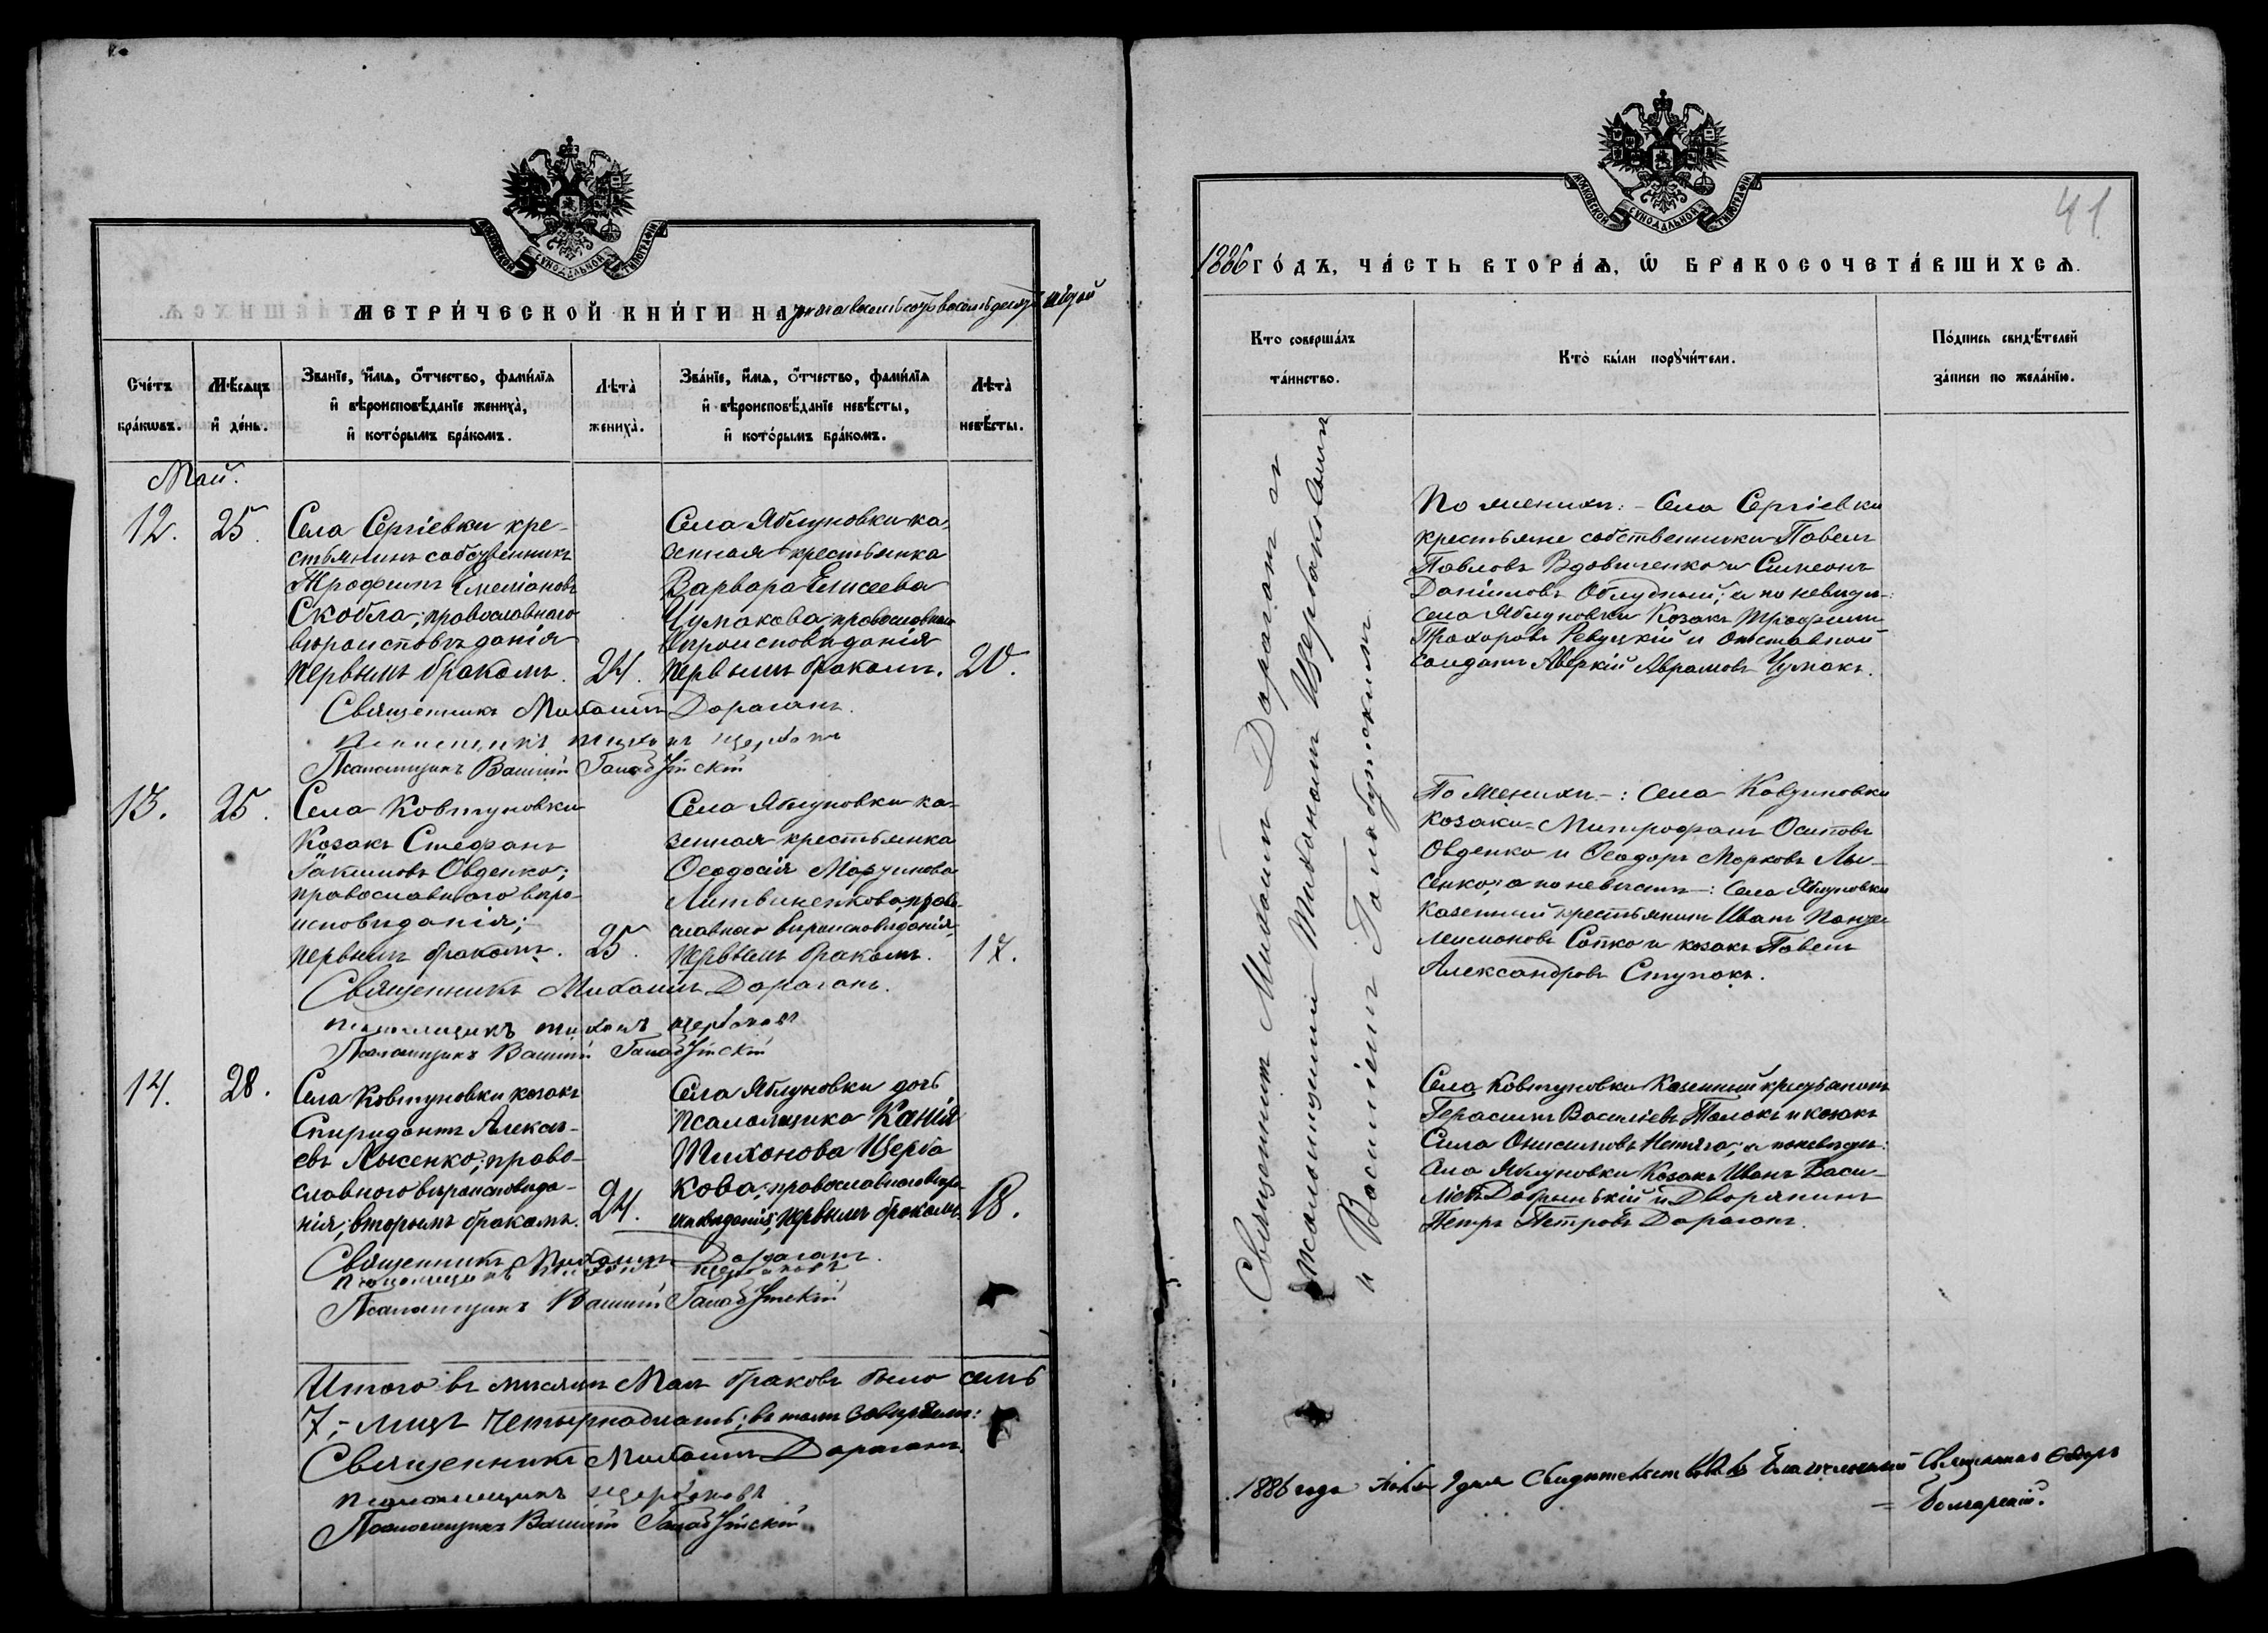 МОСКОВСКОЙ СѴНОДАЛЬНОЙ ТИПОГРАФІИ
МЕТРИ́ЧЕСКОЙ КНИ́ГИ НА тысяча восемьсотъ восемьдесятъ шестой
Сче́тъ бра́кωвъ.
Мѣ́сяцъ и҆ де́нь.
Зва́нїе, и҆́мѧ, ѻ҆́тчество, фами́лїѧ
и҆ вѣроисповѣ́данїе жениха̀,
и҆ кото́рымъ бра́комъ.
Лѣ́та̀
жениха̀.
Зва́нїе, и҆́мѧ, ѻ҆́тчество, фами́лїѧ
и҆ вѣроисповѣ́данїе невѣ́сты,
и҆ кото́рымъ бра́комъ.
Лѣ́та̀
невѣ́сты.
Май.
12. 25.
Села Сергіевки кре-
стьянинъ собственникъ
Трофимъ Емеліановъ
Скобла; православнаго
вѣроисповѣданія
первымъ бракомъ. 24.
Села Яблуновки ка-
зенная крестьянка
Варвара Елисеева
Чумакова, православнаго
вѣроисповѣданія
первымъ бракомъ. 20.
Священникъ Михаилъ Дараганъ.
Псаломщикъ Тихонъ Щербаковъ
Псаломщикъ Василій Голабутскій
13. 25.
Села Ковтуновки
Козакъ Стефанъ
Іакимовъ Овденко;
православнаго вѣро-
исповѣданія;
первымъ бракомъ. 25.
Села Яблуновки ка-
зенная крестьянка
Ѳеодосія Мартинова
Литвиненкова, право-
славнаго вѣроисповѣданія,
первымъ бракомъ. 17.
Священникъ Михаилъ Дараганъ.
Псаломщикъ Тихонъ Щербаковъ
Псаломщикъ Василій Голабутскій
14. 28.
Села Ковтуновки козакъ
Спиридонъ Алексѣ-
евъ Лысенко; право-
славнаго вѣроисповѣда-
нія; вторымъ бракомъ. 24.
Села Яблуновки дочь
псаломщика
Тихонова Щерба
кова; православнаго вѣро-
исповѣданія; первымъ бракомъ. 18.
Священникъ Михаилъ Дараганъ.
Псаломщикъ Тихонъ Щербаковъ
Псаломщикъ Василій Голабутскій
Итого въ мѣсяцѣ Маѣ браковъ было семь
7; лицъ четырнадцать; въ томъ
Священникъ Михаилъ Дараганъ.
Псаломщикъ Щербаковъ
Псаломщикъ Василій Голабутскій
41
МОСКОВСКОЙ СѴНОДАЛЬНОЙ ТИПОГРАФІИ
1886 ГО́ДЪ, ЧА́СТЬ ВТОРА́Ѧ, Ѡ҆ БРАКОСОЧЕТА́ВШИХСѦ.
Кто соверша́лъ
та́инство.
Кто̀ бы́ли порꙋчи́тели.
По́дпись свидѣ́телей
за́писи по жела́нїю.
Священникъ Михаилъ Дараганъ съ
псаломщиками Тихономъ Щербаковымъ
и Василіемъ Голабутскимъ
По женихѣ: - Села Сергіевки
крестьяне собственники Павелъ
Павловъ Вдовиченко и Симеонъ
Даніиловъ а по невѣстѣ:
села Яблуновки Козакъ Трофимъ
Прохоровъ Ревуцкій и отставной
солдатъ Аверкій Аврамовъ Чумакъ.
По женихѣ -: Села Ковтуновки
козаки Митрофанъ Осиповъ
Овденко и Ѳеодоръ Марковъ Лы-
сенко; а по невѣстѣ -: Села Яблуновки
Казенный крестьянинъ Иванъ Панте-
леимоновъ Сопко и козакъ Павелъ
Александровъ Ступакъ.
Села Ковтуновки Казенный крестьянинъ
Герасимъ Васильевъ и козакъ
Сила Онисимовъ Нетяга; а по невѣстѣ:
Села Яблуновки Козакъ Иванъ Васи-
ліевъ Добрынькій и Дворянинъ
Петръ Петровъ Дараганъ.
1886 года дня Священникъ Ѳедоръ
Болгарскій.